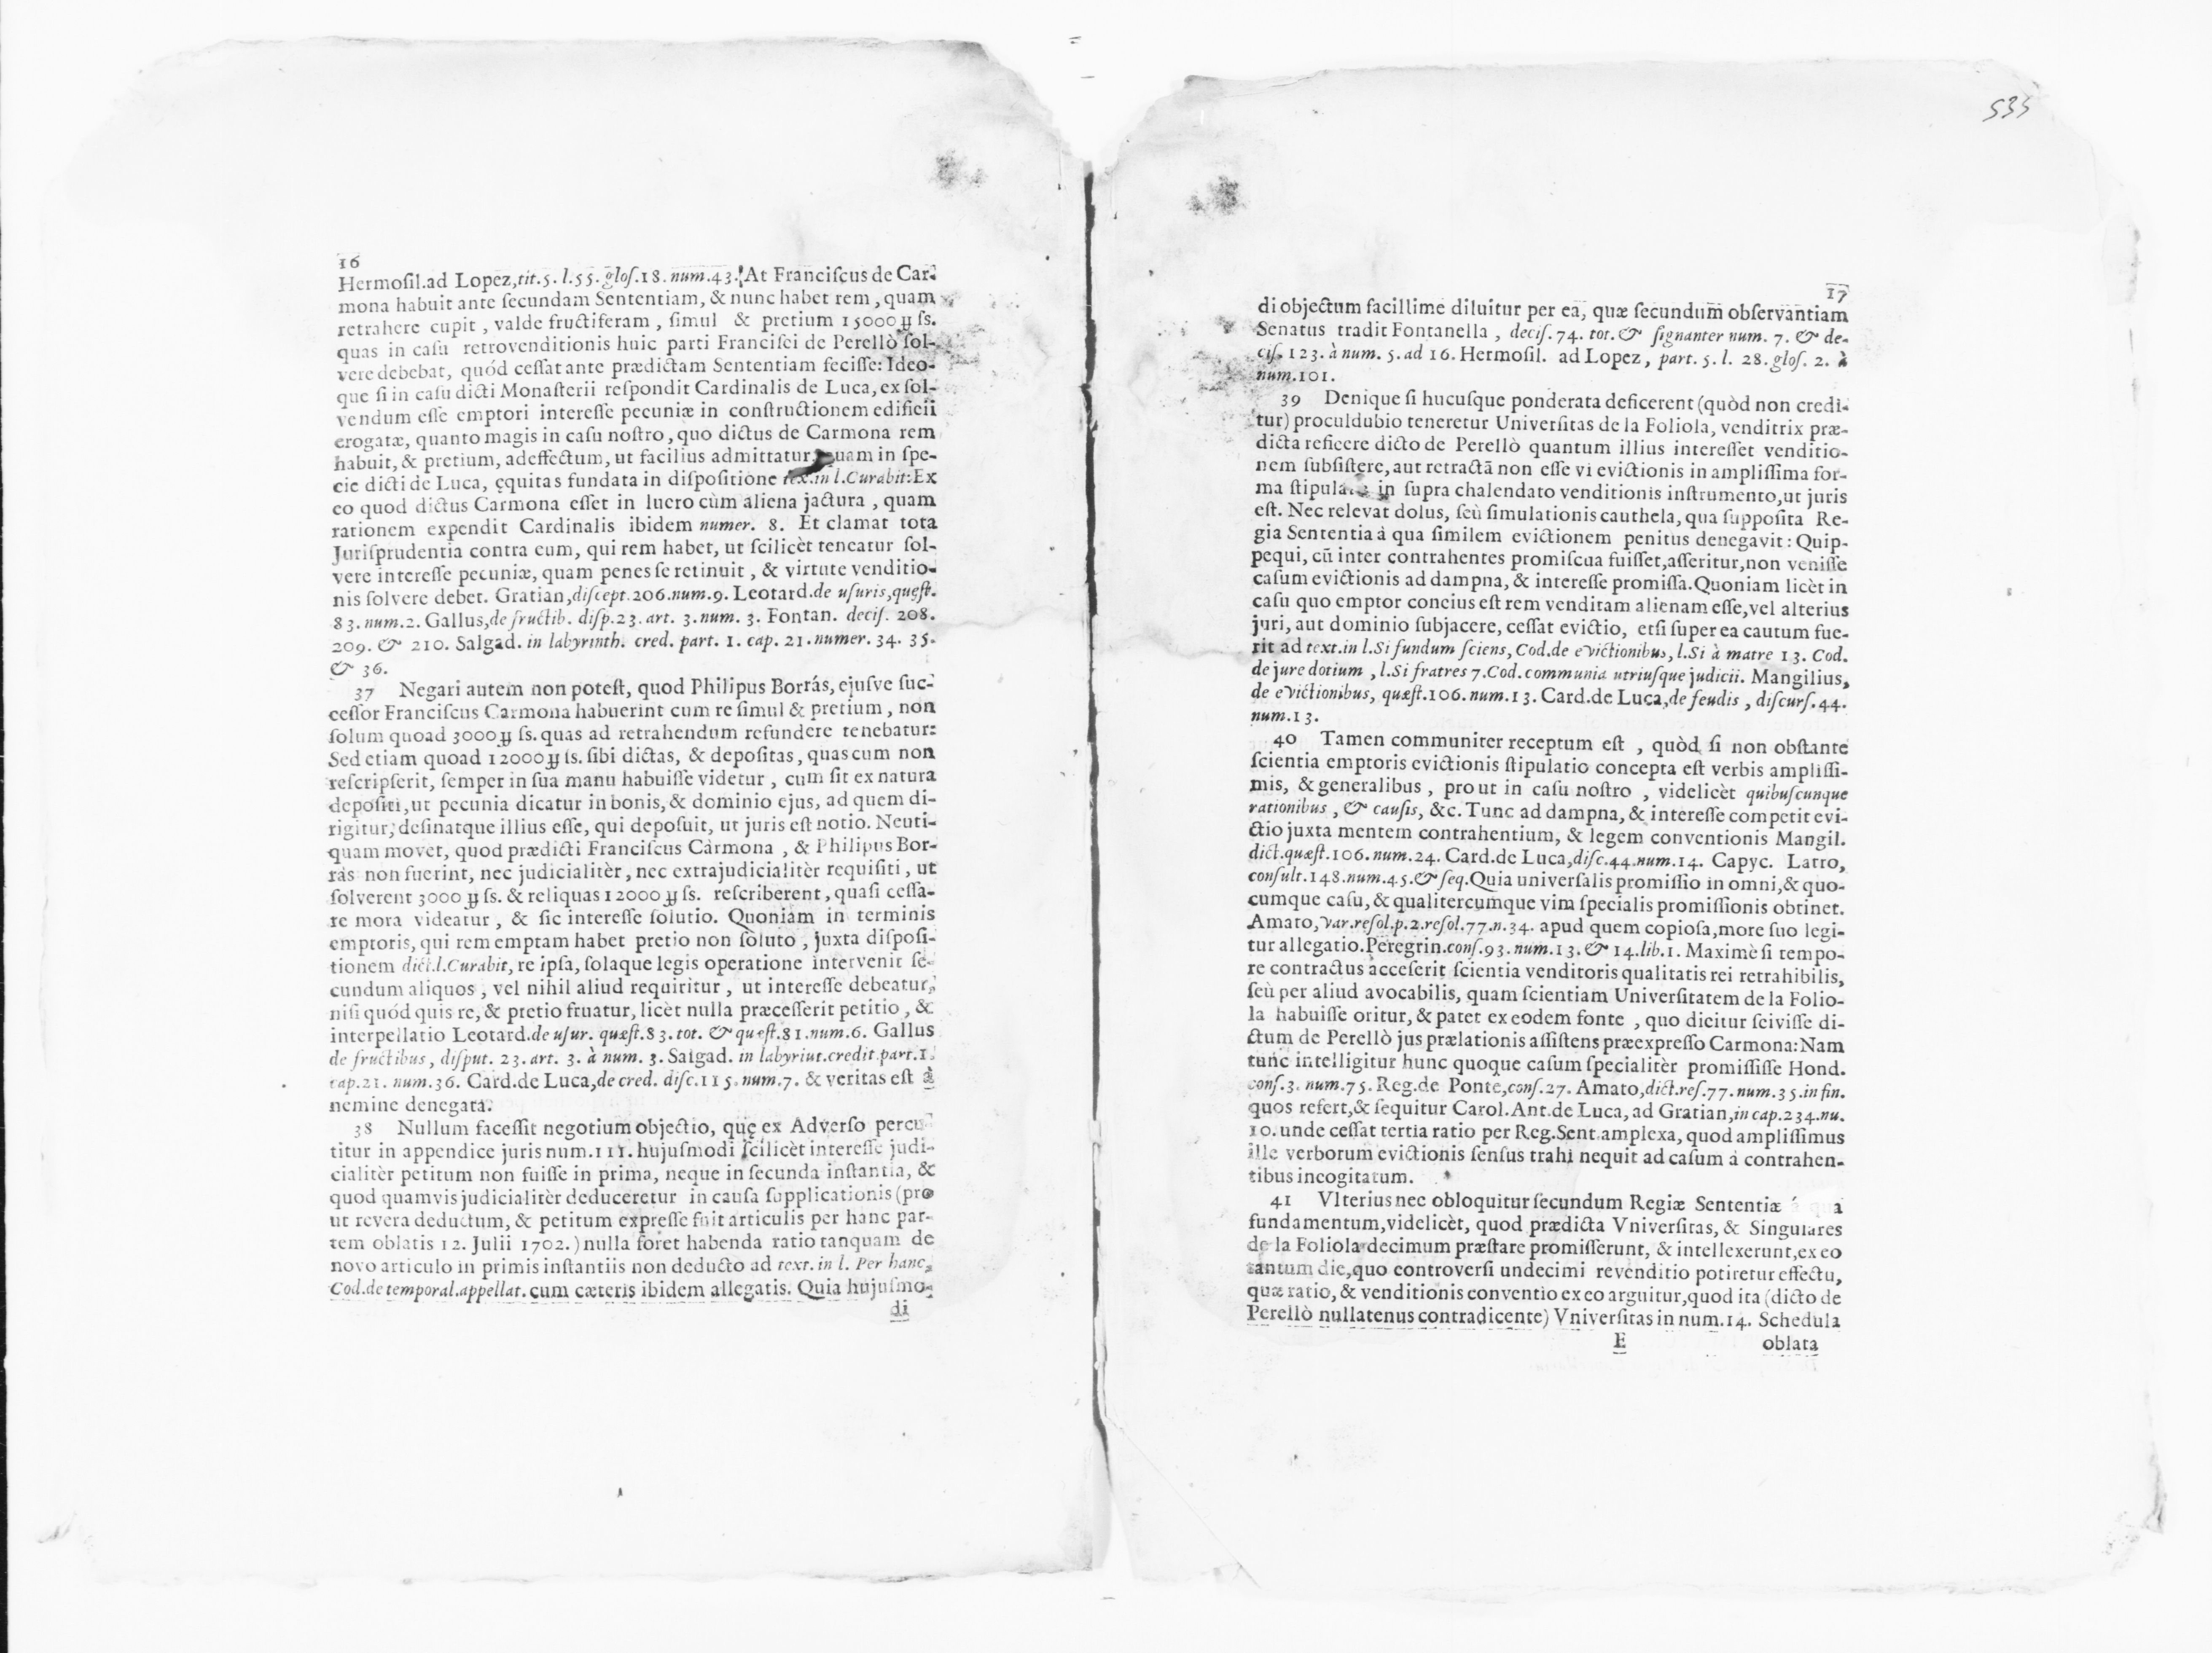 16
Hermosil.ad Lopez,tit.5. l.55. glos.18. num.43. At Franciscus de Car-
mona habuit ante secundam Sententiam, & nunc habet rem, quam
retrahere cupit, valde fructiferam, simul & pretium 15000 ss.
quas in casu retrovenditionis huic parti Francisci de Perellò sol-
vere debebat, quód cessat ante prædictam Sententiam fecisse: Ideo-
que si in casu dicti Monasterii respondit Cardinalis de Luca, ex sol-
vendum esse emptori interesse pecuniæ in constructionem edificii
erogatæ, quanto magis in casu nostro, quo dictus de Carmona rem
habuit, & pretium, adeffectum, ut facilius admittatur, quam in spe-
cie dicti de Luca, ęquitas fundata in dispositione tex.in l.Curabit:Ex
eo quod dictus Carmona esset in lucro cùm aliena jactura, quam
rationem expendit Cardinalis ibidem numer. 8. Et clamat tota
Jurisprudentia contra eum, qui rem habet, ut scilicèt teneatur sol-
vere interesse pecuniæ, quam penes se retinuit, & virtute venditio-
nis solvere debet. Gratian,discept.206.num.9. Leotard.de usuris,quęst.
83.num.2. Gallus,de fructib. disp.23. art. 3.num. 3. Fontan. decis. 208.
209. & 210. Salgad. in labyrinth. cred. part. 1. cap. 21.numer. 34. 35.
& 36.
37 Negari autem non potest, quod Philipus Borrás, ejusve suc-
cessor Franciscus Carmona habuerint cum re simul & pretium, non
solum quoad 3000 ss. quas ad retrahendum refundere tenebatur:
Sed etiam quoad 12000 ss. sibi dictas, & depositas, quas cum non
rescripserit, semper in sua manu habuisse videtur, cum sit ex natura
depositi,ut pecunia dicatur in bonis,& dominio ejus, ad quem di-
rigitur,desinatque illius esse, qui deposuit, ut juris est notio. Neuti-
quam movet, quod prædicti Franciscus Carmona, & Philipus Bor-
rás non fuerint, nec judicialitèr, nec extrajudicialitèr requisiti, ut
solverent 3000 ss. & reliquas 12000 ss. rescriberent, quasi cessa-
re mora videatur, & sic interesse solutio. Quoniam in terminis
emptoris, qui rem emptam habet pretio non soluto, juxta disposi-
tionem dict.l.Curabit, re ipsa, solaque legis operatione intervenit se-
cundum aliquos, vel nihil aliud requiritur, ut interesse debeatur,
nisi quód quis re,& pretio fruatur, licèt nulla præcesserit petitio, &
interpellatio Leotard.de usur. quæst.83. tot. & quęst.81.num.6. Gallus
de fructibus, disput. 23. art. 3. à num. 3. Salgad. in labyriut.credit.part.1.
cap.21. num.36. Card.de Luca,de cred. disc.115.num.7. & veritas est à
nemine denegata.
38 Nullum facessit negotium objectio, quę ex Adverso percu-
titur in appendice juris num.111. hujusmodi scilicèt interesse judi-
cialitèr petitum non fuisse in prima, neque in secunda instantia, &
quod quamvis judicialitèr deduceretur in causa supplicationis (pro
ut revera deductum, & petitum expresse fuit articulis per hanc par-
tem oblatis 12. Julii 1702.) nulla foret habenda ratio tanquam de
novo articulo in primis instantiis non deducto ad text. in l. Per hanc,
Cod.de temporal.appellat. cum cæteris ibidem allegatis. Quia hujusmo-
di
535
17
di objectum facillime diluitur per ea, quæ secundum observantiam
Senatus tradit Fontanella, decis. 74. tot. & signanter num. 7. & de-
cis. 123. à num. 5. ad 16. Hermosil. ad Lopez, part. 5. l. 28. glos. 2. à
num.101.
39 Denique si hucusque ponderata deficerent (quòd non credi-
tur) proculdubio teneretur Universitas de la Foliola, venditrix præ-
dicta reficere dicto de Perellò quantum illius interesset venditio-
nem subsistere, aut retractã non esse vi evictionis in amplissima for-
ma in supra chalendato venditionis instrumento,ut juris
est. Nec relevat dolus, seù simulationis cauthela, qua supposita Re-
gia Sententia à qua similem evictionem penitùs denegavit: Quip-
pequi, cũ inter contrahentes promiscua fuisset,asseritur,non venisse
casum evictionis ad dampna, & interesse promissa.Quoniam licèt in
casu quo emptor concius est rem venditam alienam esse, vel alterius
juri, aut dominio subjacere, cessat evictio, etsi super ea cautum fue-
rit ad text.in l.Si fundum sciens, Cod.de evictionibus, l.Si à matre 13. Cod.
de jure dotium, l.Si fratres 7.Cod.communia utriusque judicii. Mangilius,
de evictionibus, quæst.106.num.13. Card.de Luca,de feudis, discurs.44.
num.13.
40 Tamen communiter receptum est, quòd si non obstante
scientia emptoris evictionis stipulatio concepta est verbis amplissi-
mis, & generalibus, pro ut in casu nostro, videlicèt quibuscunque
rationibus, & causis, &c. Tunc ad dampna, & interesse competit evi-
ctio juxta mentem contrahentium, & legem conventionis Mangil.
dict.quæst.106.num.24. Card.de Luca,disc.44.num.14. Capyc. Latro,
consult.148.num.45.& seq.Quia universalis promissio in omni,& quo-
cumque casu, & qualitercumque vim specialis promissionis obtinet.
Amato,var.resol.p.2.resol.77.n.34. apud quem copiosa,more suo legi-
tur allegatio.Peregrin.cons.93.num.13.& 14.lib.1. Maximè si tempo-
re contractus acceserit scientia venditoris qualitatis rei retrahibilis,
seù per aliud avocabilis, quam scientiam Universitatem de la Folio-
la habuisse oritur, & patet ex eodem fonte, quo dicitur scivisse di-
ctum de Perellò jus prælationis assistens præexpresso Carmona:Nam
tunc intelligitur hunc quoque casum specialitèr promississe Hond.
cons.3. num.75. Reg.de Ponte,cons.27. Amato,dict.res.77.num.35.in fin.
quos refert,& sequitur Carol.Ant.de Luca, ad Gratian,in cap.234.nu.
10. unde cessat tertia ratio per Reg.Sent.amplexa, quod amplissimus
ille verborum evictionis sensus trahi nequit ad casum á contrahen-
tibus incogitatum.
41 Vlterius nec obloquitur secundum Regiæ Sententiæ á qua
fundamentum,videlicèt, quod prædicta Vniversitas, & Singulares
de la Foliola decimum præstare promisserunt, & intellexerunt,ex eo
tantum die,quo controversi undecimi revenditio potiretur effectu,
quæ ratio, & venditionis conventio ex eo arguitur,quod ita (dicto de
Perellò nullatenus contradicente) Vniversitas in num.14. Schedula
E oblata